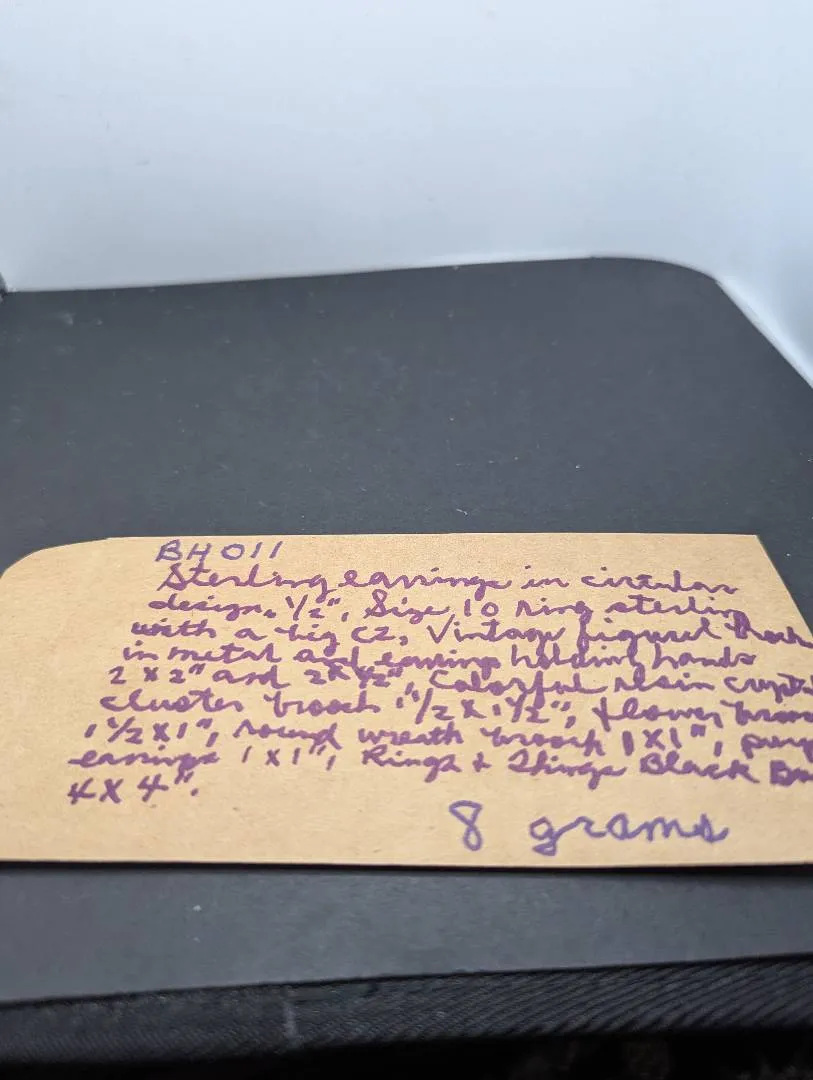 BH011
Sterling earrings in circular
design, 1/2", Size 10 ring sterling
with a big CZ, Vintage figural
in metal and earrings holding hands
2 x 2" and 2 x 1/2", Colorful resin
cluster brooch 1 1/2 x 1 1/2", flower
1 1/2 x 1", round wreath brooch 1 x 1",
earrings 1 x 1", Rings & Things Black
4 x 4".
8 grams